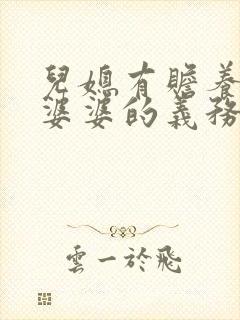 兒媳有贍養
婆婆的義務
雲一於飛